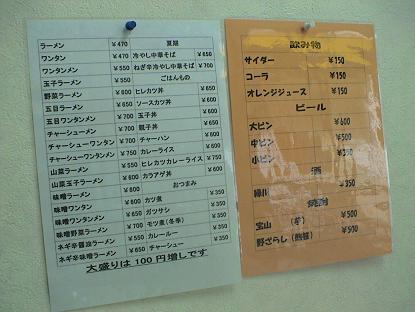 ラーメン ¥470 夏期
ワンタン ¥470 冷やし中華そば ¥650
ワンタンメン ¥550 ねぎ辛冷やし中華そば ¥700
玉子ラーメン ¥550 ごはんもの
野菜ラーメン ¥600 ヒレカツ丼 ¥650
五目ラーメン ¥600 ソースカツ丼 ¥650
五目ワンタンメン ¥700 玉子丼
チャーシューメン ¥700 親子丼 ¥650
チャーシューワンタン ¥700 チャーハン ¥600
チャーシューワンタンメン ¥750 カレーライス ¥600
山菜ラーメン ¥550 ヒレカツカレーライス ¥750
山菜玉子ラーメン ¥600 カラアゲ丼
味噌ラーメン ¥600 おつまみ
味噌ワンタン ¥600 カツ煮 ¥350
味噌ワンタンメン ガツサシ ¥350
味噌野菜ラーメン ¥700 モツ煮(冬季) ¥350
ネギ辛醤油ラーメン ¥550 カレールー ¥350
ネギ辛味噌ラーメン ¥650 チャーシュー ¥350
大盛りは100円増しです
飲み物
サイダー ¥150
コーラ ¥150
オレンジジュース ¥150
ビール
大ビン ¥600
中ビン ¥500
小ビン ¥350
酒
緑川 ¥350
焼酎
宝山 (芋) ¥500
野ざらし ¥500